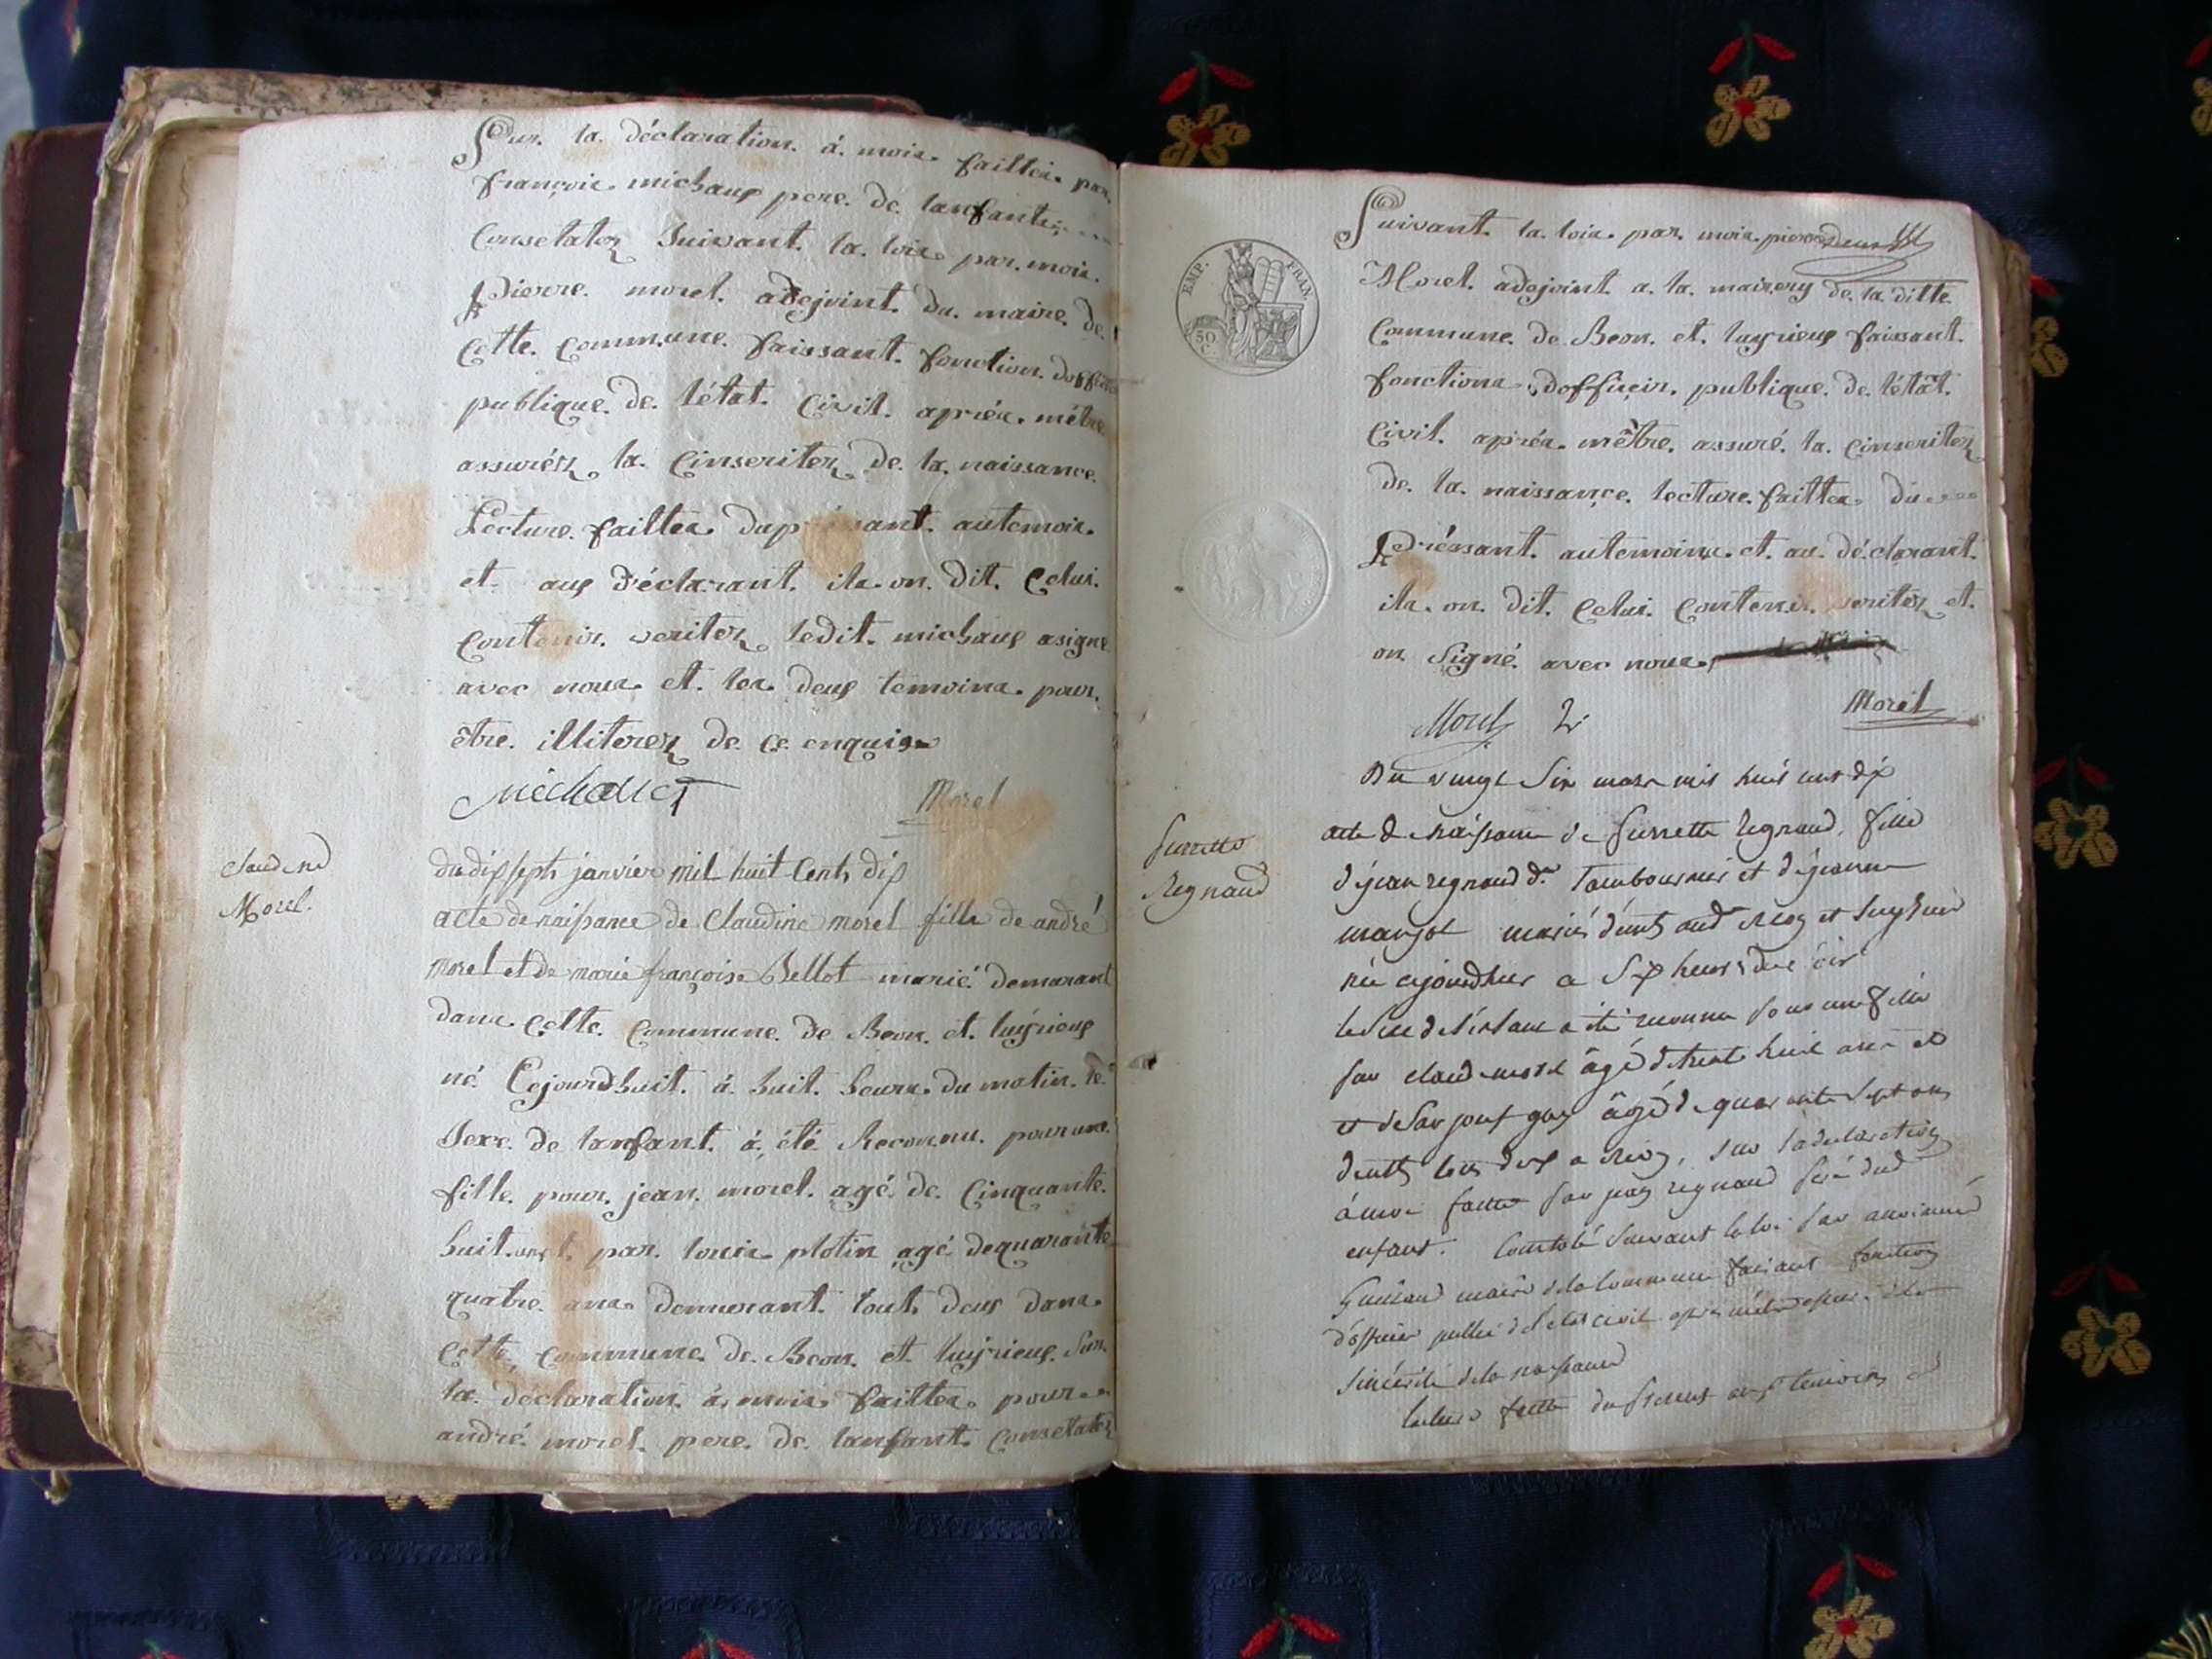 Sur. la. déclaration. à. moia. faittea. par.
françoia. michaux pere. de. lanfant.
Consetatez Suivant. la. loia. par. moia.
Pierre. morel. adejoint. du. maire. de.
Cette. Commune. faissant. fonction. doffic
publique. de. létat. Civil. apréa. métre.
assuréz la. Cinseritez de. la. naissance.
Lecture. faittea. dup ant. autemoia.
et aux déclarant. ila. on. dit. Celui.
Contenir. veritez ledit. michaux asigné
avec noua. et. lea. deux temoina. pour.
être. illiterez de. ce. enquis
Michaud Morel
Claudine
Morel.
du dix sept janvier mil huit Cent dix
acte de naissance de Claudine morel fille de andré
morel et de marie françoise Bellot marié demarant
dana. Cette. Commune. de Beon. et. luyrieux
né. Cejourdhuit. à. huit. heura. du matin. le.
Sexe. de lanfant. à. été. Reconnu. pour une.
fille. pour. jean. morel. agé. de. Cinquante.
huit. par. louia plotin agé. dequarante
quatre. ana. demeurant. tout. deux dana.
Cette. Commune. de. Beon. et luyrieux. Sur.
la. déclaration. à. moia. faittea. pour.
andré. morel. pere. de. lanfant. Consetatez
EMP. FRAN.
50
C.
Suivant. la. loia. par. moia. pierre
Morel. adejoint. a. la. mairery de. la ditte
Commune. de. Beon. et. luyrieux faissant.
fonctiona. dofficir. publique. de. létât.
Civil. apréa. mêtre. assuré. la. Cinseritez
de. la. naissance. lecture. faittea. du
Préssant. autemoina. et. au. déclarant.
ila. on. dit. Celui. Contenir. veritez et.
on Signé. avec noua.
Morel Morel
Du vingt Six mars mil huit cent dix
Regnaud
acte de naissance de regnaud, fille
dejean regnaud dit et dejeanne
marjol mariés
née cejourdhui a Six heures du soir
le sexe de lenfant a été reconnu pour une fille
par claude morel âgé de trente huit ans et
et de par âgé de quarante sept ans
deux a , sur la declaration
à moi faitte par jean regnaud père dud
enfant. Constaté Suivant la loi par
maire de la Commune faisant fonction
dofficier public de letat civil après
Sincérité de la naissance
lecture faitte du présent aux temoins et